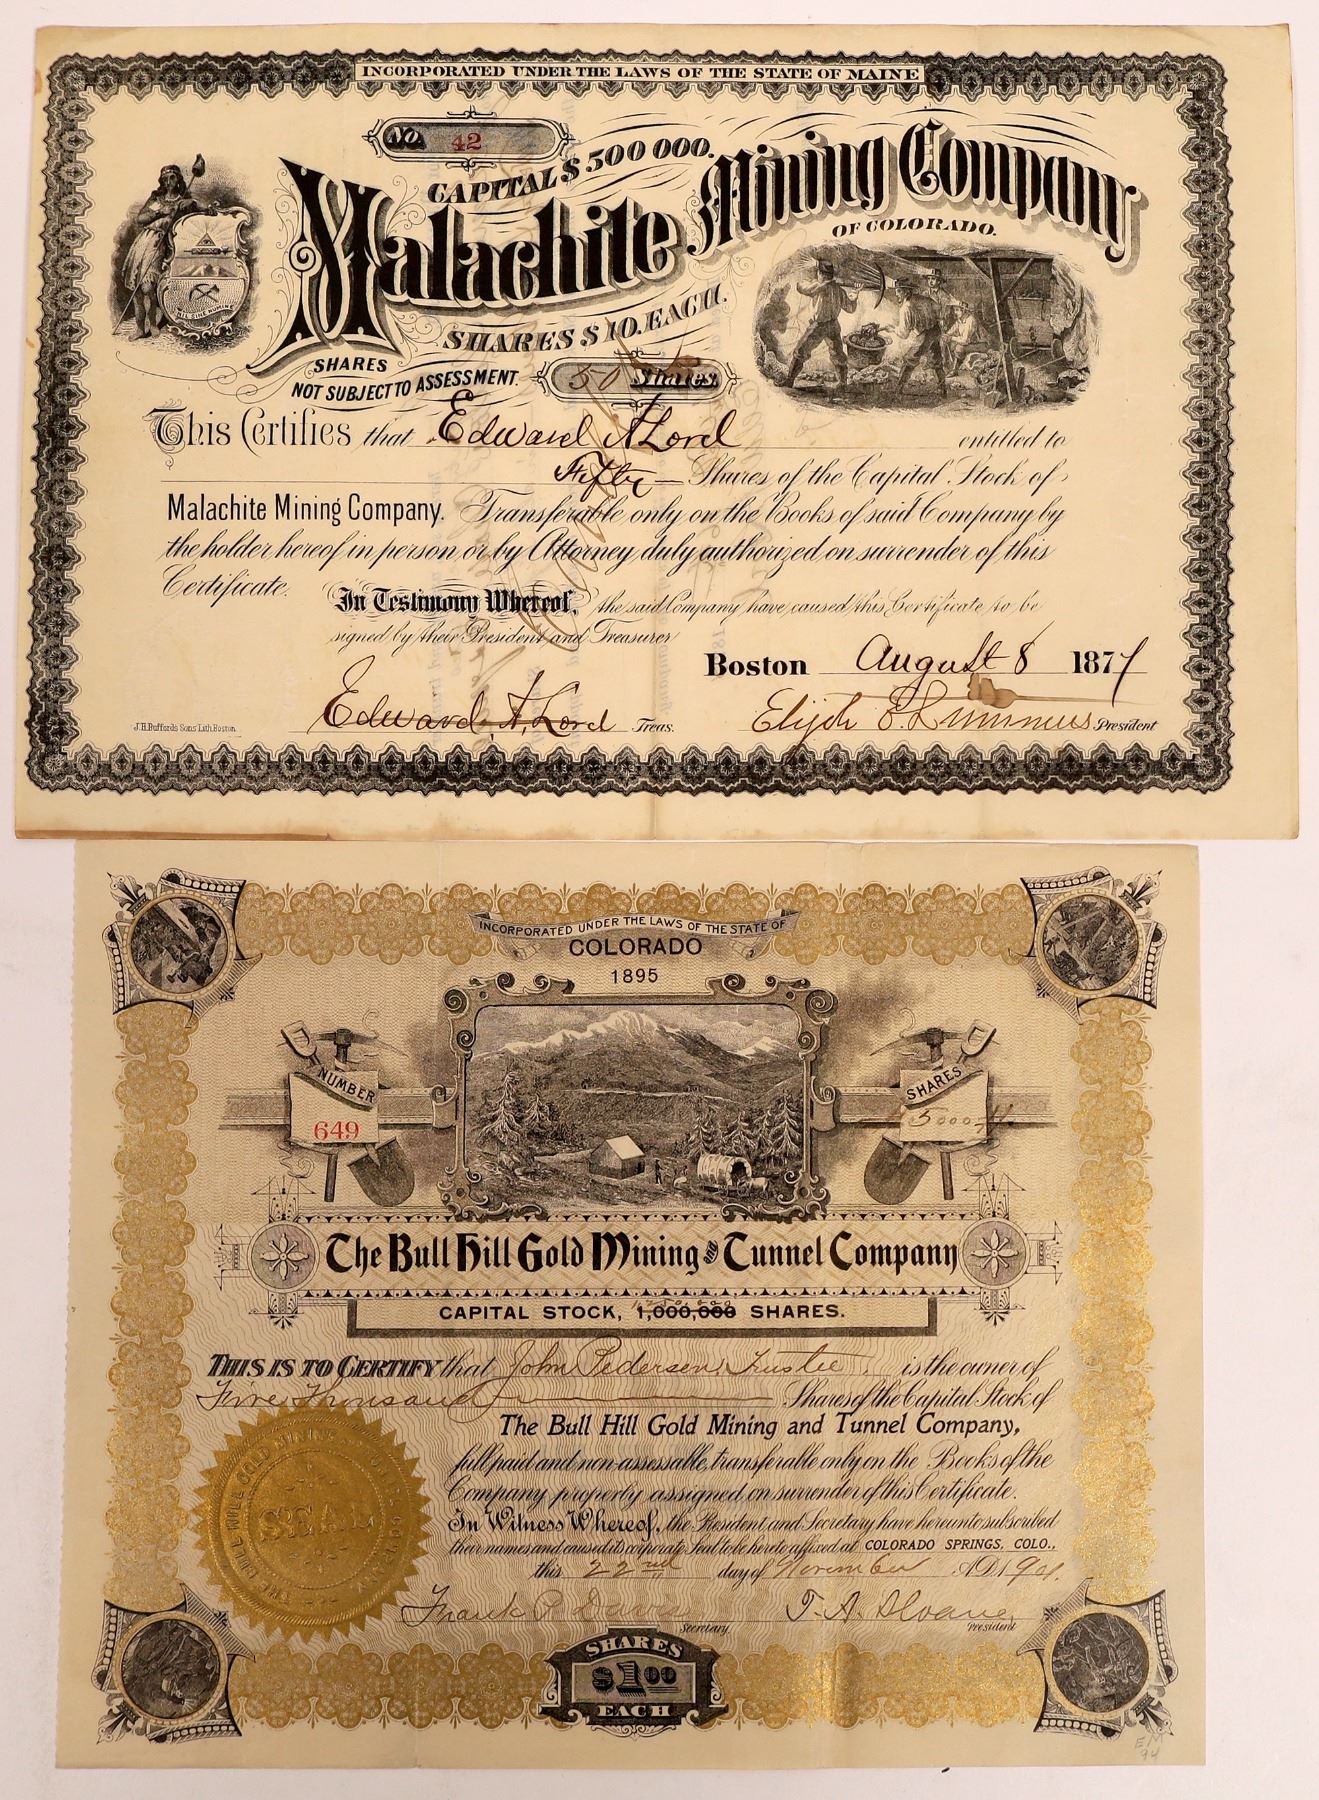 INCORPORATED UNDER THE LAWS OF THE STATE OF MAINE
No. 42
CAPITAL $500 000.
Malachite Mining Company
OF COLORADO.
SHARES $10. EACH.
NIL SINE NUMINE
SHARES
NOT SUBJECT TO ASSESSMENT.
50 Shares
This Certifies that Edward A Lord entitled to
Fifty Shares of the Capital Stock of
Malachite Mining Company. Transferable only on the Books of said Company by
the holder hereof in person or by Attorney duly authorized on surrender of this
Certificate.
In Testimony Whereof, the said Company have caused this Certificate to be
signed by their President and Treasurer
Boston August 8 1877
Edward A. Lord Treas.
President
J.H. Bufford's Sons Lith. Boston
INCORPORATED UNDER THE LAWS OF THE STATE OF
COLORADO
1895
NUMBER
649
SHARES
5000
The Bull Hill Gold Mining and Tunnel Company
CAPITAL STOCK, 1,000,000 SHARES.
THIS IS TO CERTIFY that John Pedersen, Trustee, is the owner of
Five Thousand Shares of the Capital Stock of
The Bull Hill Gold Mining and Tunnel Company,
full paid and non-assessable, transferable only on the Books of the
Company properly assigned, on surrender of this Certificate.
In Witness Whereof, the President and Secretary have hereunto subscribed
their names and caused its corporate Seal to be hereto affixed at COLORADO SPRINGS, COLO.,
this 22nd day of November A.D. 1901.
Frank P. Davis
Secretary.
T. A. Sloane,
President
THE BULL HILL GOLD MINING
SEAL
SHARES
$1.00
EACH
EM
94